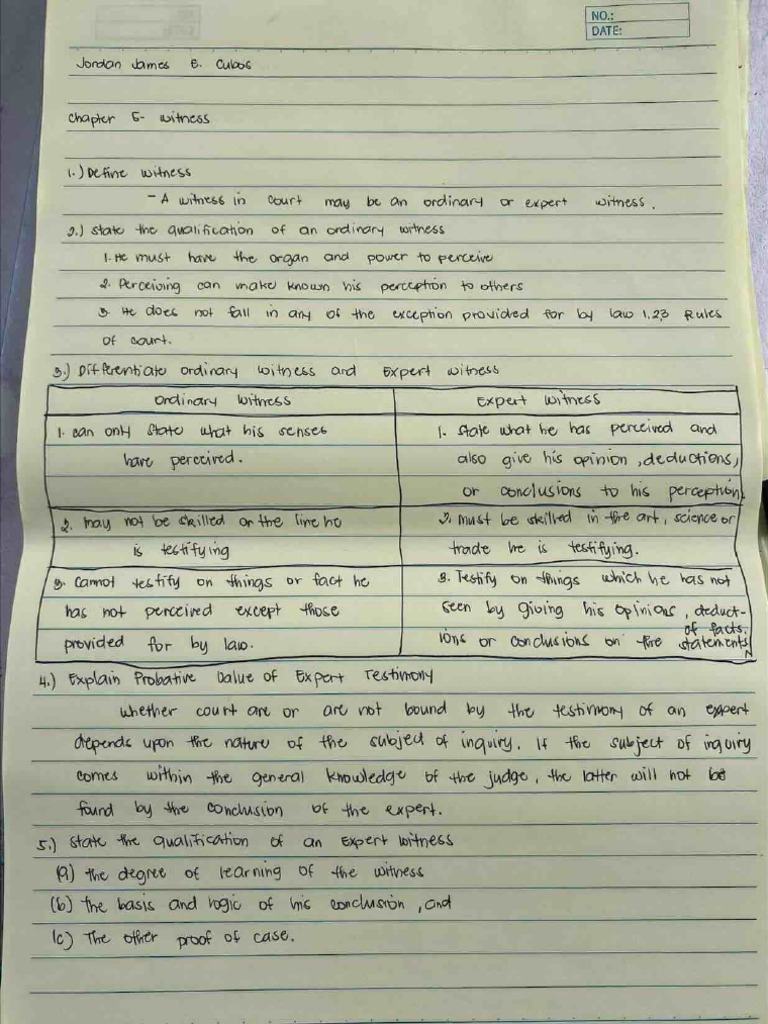 NO.:
DATE:
Jordan James E. Cubos
Chapter 5- witness
1.) Define witness
- A witness in court may be an ordinary or expert witness.
2.) State the qualification of an ordinary witness
1. He must have the organ and power to perceive
2. Perceiving can make known his perception to others
3. He does not fall in any of the exception provided for by law 1,2,3 Rules
of court.
3.) Differentiate ordinary witness and Expert witness
Ordinary witness
Expert witness
1. can only state what his senses
have perceived.
1. state what he has perceived and
also give his opinion, deductions,
or conclusions to his perception.
2. may not be skilled on the line he
is testifying
2. must be skilled in the art, science or
trade he is testifying.
3. Cannot testify on things or fact he
has not perceived except those
provided for by law.
3. Testify on things which he has not
seen by giving his opinions, deduct-
ions or conclusions on the statements
of facts.
4.) Explain Probative Value of Expert Testimony
whether court are or are not bound by the testimony of an expert
depends upon the nature of the subject of inquiry. If the subject of inquiry
comes within the general knowledge of the judge, the latter will not be
found by the conclusion of the expert.
5.) State the qualification of an Expert witness
(a) the degree of learning of the witness
(b) the basis and logic of his conclusion, and
(c) The other proof of case.